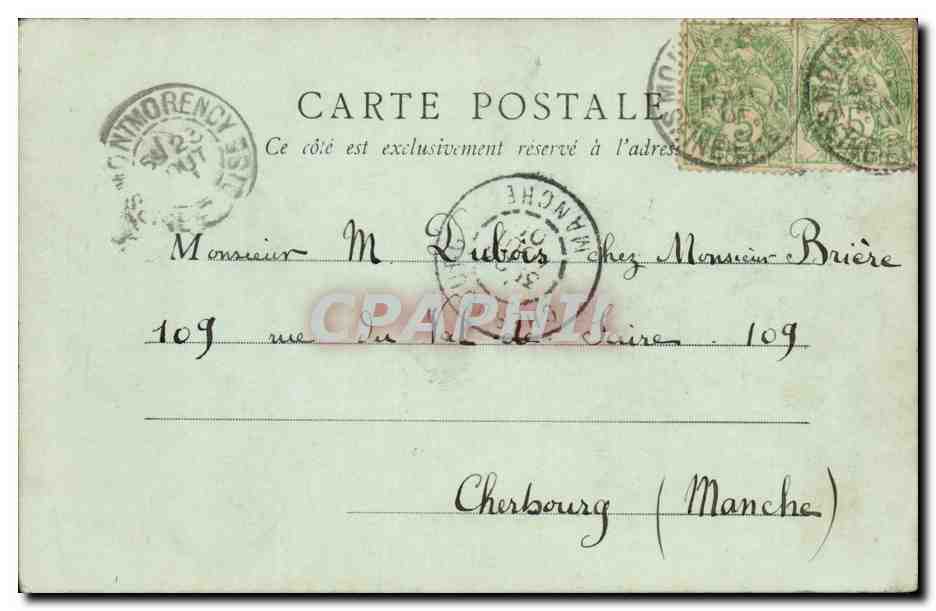 CARTE POSTALE
Ce côté est exclusivement réservé à l'adresse
MONTMORENCY
MANCHE
5c 5c
Monsieur M. Dubois chez Monsieur Brière
CPAPHIL
109 rue du Val de Saire . 109
Cherbourg (Manche)